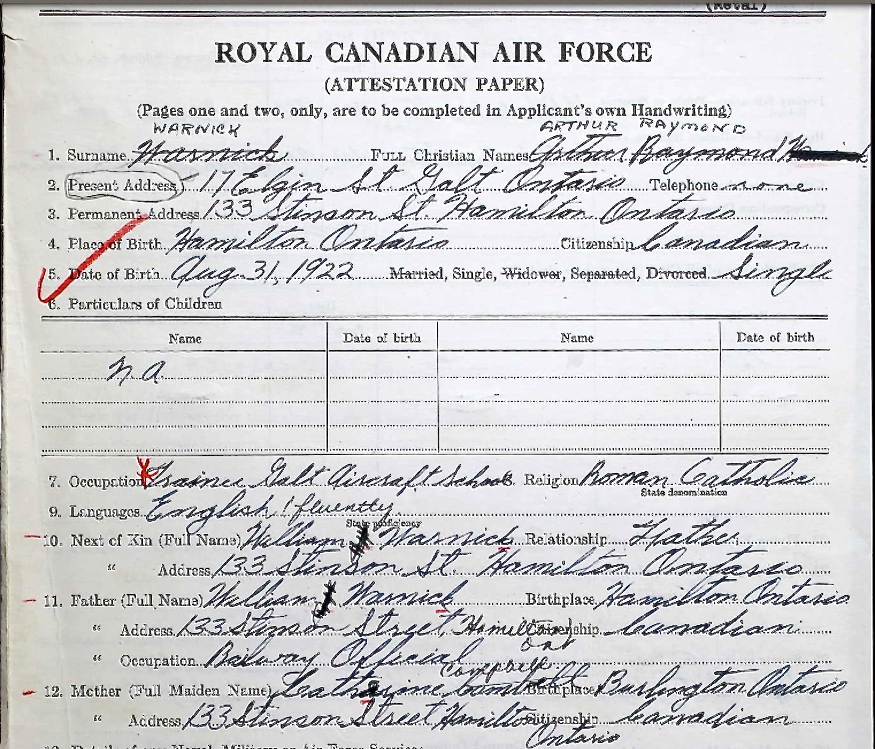 (Retal)
ROYAL CANADIAN AIR FORCE
(ATTESTATION PAPER)
(Pages one and two, only, are to be completed in Applicant's own Handwriting)
WARNICK ARTHUR RAYMOND
1. Surname Warnick FULL Christian Names Arthur Raymond
2. Present Address 17 Elgin St Galt Ontario Telephone none
3. Permanent Address 133 Stinson St. Hamilton Ontario
4. Place of Birth Hamilton Ontario Citizenship Canadian
5. Date of Birth Aug. 31, 1922 Married, Single, Widower, Separated, Divorced Single
6. Particulars of Children
Name Date of birth Name Date of birth
n a
7. Occupation Trainee Galt Aircraft School Religion Roman Catholic
State denomination
9. Languages English (fluently
State proficiency
10. Next of Kin (Full Name) William Warnick Relationship Father
" Address 133 Stinson St. Hamilton Ontario
11. Father (Full Name) William Warnick Birthplace Hamilton Ontario
" Address 133 Stinson Street, Hamilton Ont Citizenship Canadian
" Occupation Railway Official
12. Mother (Full Maiden Name) Catherine Campbell Birthplace Burlington Ontario
" Address 133 Stinson Street Hamilton Citizenship Canadian
Ontario